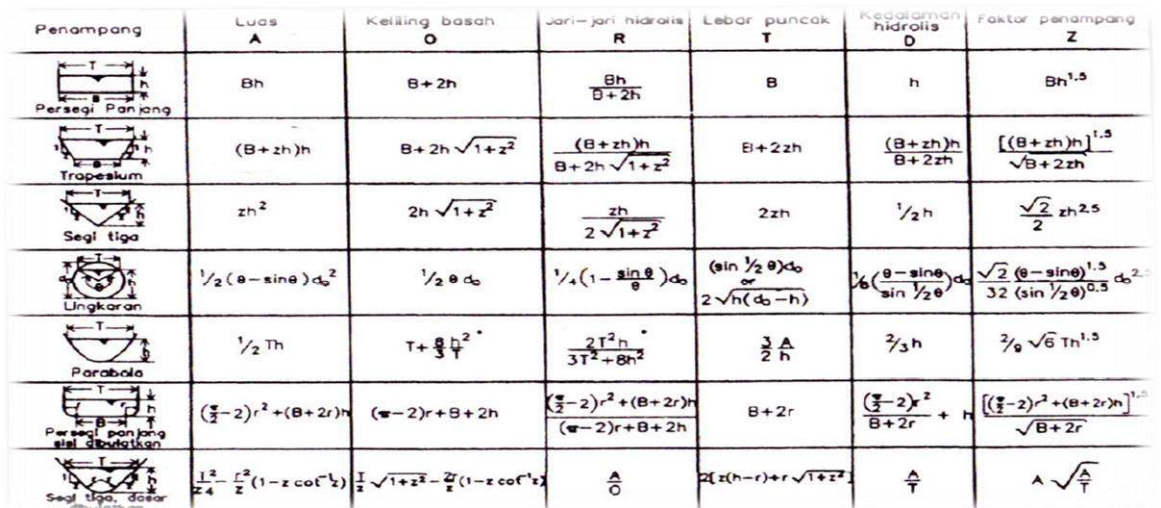 Penampang | Luas A | Keliling basah O | Jari-jari hidrolis R | Lebar puncak T | Kedalaman hidrolis D | Faktor penampang Z
Persegi Panjang | Bh | B+2h | Bh / B+2h | B | h | Bh^1.5
Trapesium | (B+zh)h | B+2h √1+z² | (B+zh)h / B+2h √1+z² | B+2zh | (B+zh)h / B+2zh | [(B+zh)h]^1.5 / √B+2zh
Segi tiga | zh² | 2h √1+z² | zh / 2 √1+z² | 2zh | ½h | √2 / 2 zh^2.5
Lingkaran | ½(θ-sinθ)d₀² | ½ θ d₀ | ¼(1-sinθ/θ)d₀ | (sin ½θ)d₀ or 2√h(d₀-h) | (θ-sinθ / sin ½θ)d₀ | √2 / 32 (θ-sinθ)^1.5 / (sin ½θ)^0.5 d₀^2.5
Parabola | ½ Th | T+ 8/3 h²/T * | 2T²h / 3T²+8h² * | 3/2 A/h | ⅔h | 2/9 √6 Th^1.5
Persegi panjang sisi dibulatkan | (π/2-2)r²+(B+2r)h | (π-2)r+B+2h | (π/2-2)r²+(B+2r)h / (π-2)r+B+2h | B+2r | (π/2-2)r² / B+2r + h | [(π/2-2)r²+(B+2r)h]^1.5 / √B+2r
Segi tiga, dasar dibulatkan | T²/z4 - r²/z (1-z cot⁻¹z) | T/z √1+z² - 2r/z (1-z cot⁻¹z) | A/O | 2[z(h-r)+r √1+z²] | A/T | A √A/T